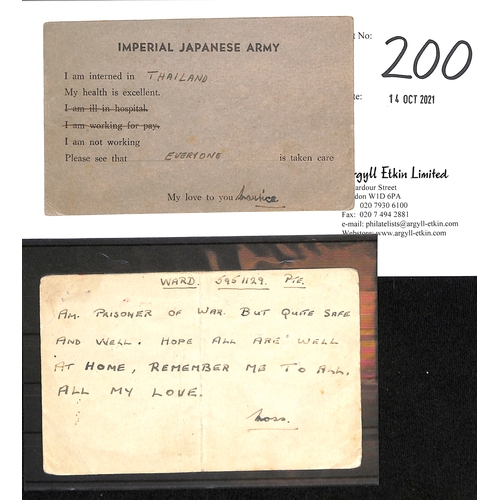 IMPERIAL JAPANESE ARMY
I am interned in THAILAND
My health is excellent.
I am ill in hospital.
I am working for pay.
I am not working
Please see that EVERYONE is taken care
My love to you Maurice
No:
200
14 OCT 2021
Argyll Etkin Limited
ardour Street
don W1D 6PA
020 7930 6100
Fax: 020 7 494 2881
e-mail: philatelists@argyll-etkin.com
Webstore: www.argyll-etkin.com
WARD. 5951129. PTE.
AM. PRISONER OF WAR. BUT QUITE SAFE
AND WELL. HOPE ALL ARE WELL
AT HOME, REMEMBER ME TO ALL.
ALL MY LOVE.